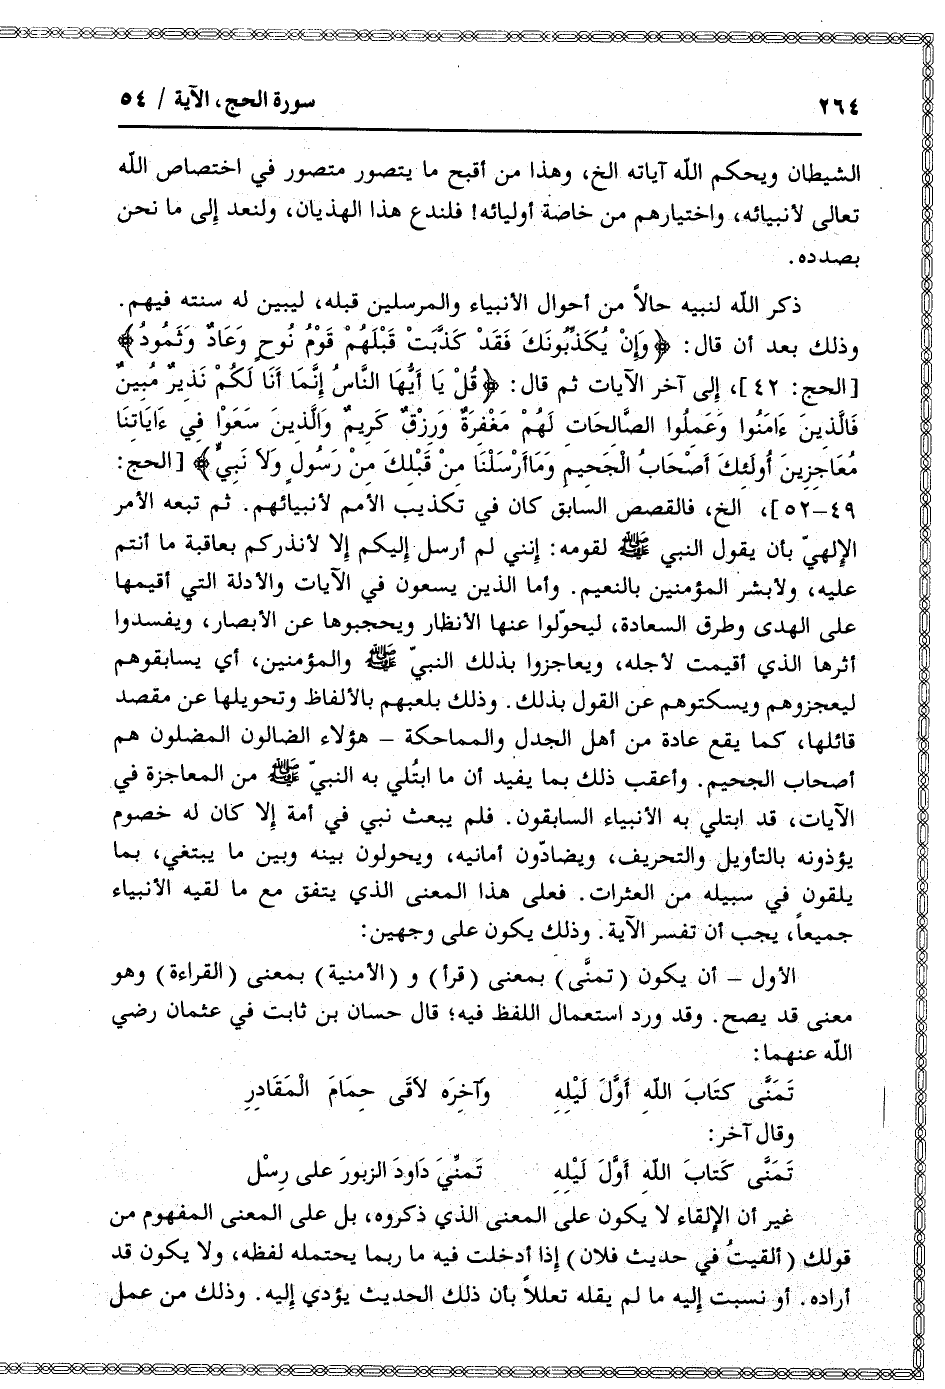 ٢٦٤ سورة الحج، الآية / ٥٤
الشيطان ويحكم الله آياته الخ، وهذا من أقبح ما يتصور متصور في اختصاص الله
تعالى لأنبيائه، واختيارهم من خاصة أوليائه! فلندع هذا الهذيان، ولنعد إلى ما نحن
بصدده.
ذكر الله لنبيه حالاً من أحوال الأنبياء والمرسلين قبله، ليبين له سنته فيهم.
وذلك بعد أن قال: ﴿وَإِنْ يُكَذِّبُونَكَ فَقَدْ كَذَّبَتْ قَبْلَهُمْ قَوْمُ نُوحٍ وَعَادٌ وَثَمُودُ﴾
[الحج: ٤٢]، إلى آخر الآيات ثم قال: ﴿قُلْ يَا أَيُّهَا النَّاسُ إِنَّمَا أَنَا لَكُمْ نَذِيرٌ مُبِينٌ
فَالَّذِينَ ءَامَنُوا وَعَمِلُوا الصَّالِحَاتِ لَهُمْ مَغْفِرَةٌ وَرِزْقٌ كَرِيمٌ وَالَّذِينَ سَعَوْا فِي ءَايَاتِنَا
مُعَاجِزِينَ أُولَئِكَ أَصْحَابُ الْجَحِيمِ وَمَا أَرْسَلْنَا مِنْ قَبْلِكَ مِنْ رَسُولٍ وَلاَ نَبِيٍّ﴾ [الحج:
٤٩-٥٢]، الخ، فالقصص السابق كان في تكذيب الأمم لأنبيائهم. ثم تبعه الأمر
الإلهيّ بأن يقول النبي ﷺ لقومه: إنني لم أرسل إليكم إلا لأنذركم بعاقبة ما أنتم
عليه، ولأبشر المؤمنين بالنعيم. وأما الذين يسعون في الآيات والأدلة التي أقيمها
على الهدى وطرق السعادة، ليحوّلوا عنها الأنظار ويحجبوها عن الأبصار، ويفسدوا
أثرها الذي أقيمت لأجله، ويعاجزوا بذلك النبيّ ﷺ والمؤمنين، أي يسابقوهم
ليعجزوهم ويسكتوهم عن القول بذلك. وذلك بلعبهم بالألفاظ وتحويلها عن مقصد
قائلها، كما يقع عادة من أهل الجدل والمماحكة – هؤلاء الضالون المضلون هم
أصحاب الجحيم. وأعقب ذلك بما يفيد أن ما ابتُلي به النبيّ ﷺ من المعاجزة في
الآيات، قد ابتلي به الأنبياء السابقون. فلم يبعث نبي في أمة إلا كان له خصوم
يؤذونه بالتأويل والتحريف، ويضادّون أمانيه، ويحولون بينه وبين ما يبتغي، بما
يلقون في سبيله من العثرات. فعلى هذا المعنى الذي يتفق مع ما لقيه الأنبياء
جميعاً، يجب أن تفسر الآية. وذلك يكون على وجهين:
الأول – أن يكون (تمنَّى) بمعنى (قرأ) و (الأمنية) بمعنى (القراءة) وهو
معنى قد يصح. وقد ورد استعمال اللفظ فيه؛ قال حسان بن ثابت في عثمان رضي
الله عنهما:
تَمَنَّى كتَابَ اللهِ أَوَّلَ لَيْلِهِ وَآخِرَه لاَقَى حِمَامَ الْمَقَادِرِ
وقال آخر:
تَمَنَّى كتَابَ اللهِ أَوَّلَ لَيْلِهِ تَمنِّيَ دَاودَ الزبورَ على رِسْل
غير أن الإلقاء لا يكون على المعنى الذي ذكروه، بل على المعنى المفهوم من
قولك (ألقيتُ في حديث فلان) إذا أدخلت فيه ما ربما يحتمله لفظه، ولا يكون قد
أراده. أو نسبت إليه ما لم يقله تعللاً بأن ذلك الحديث يؤدي إليه. وذلك من عمل